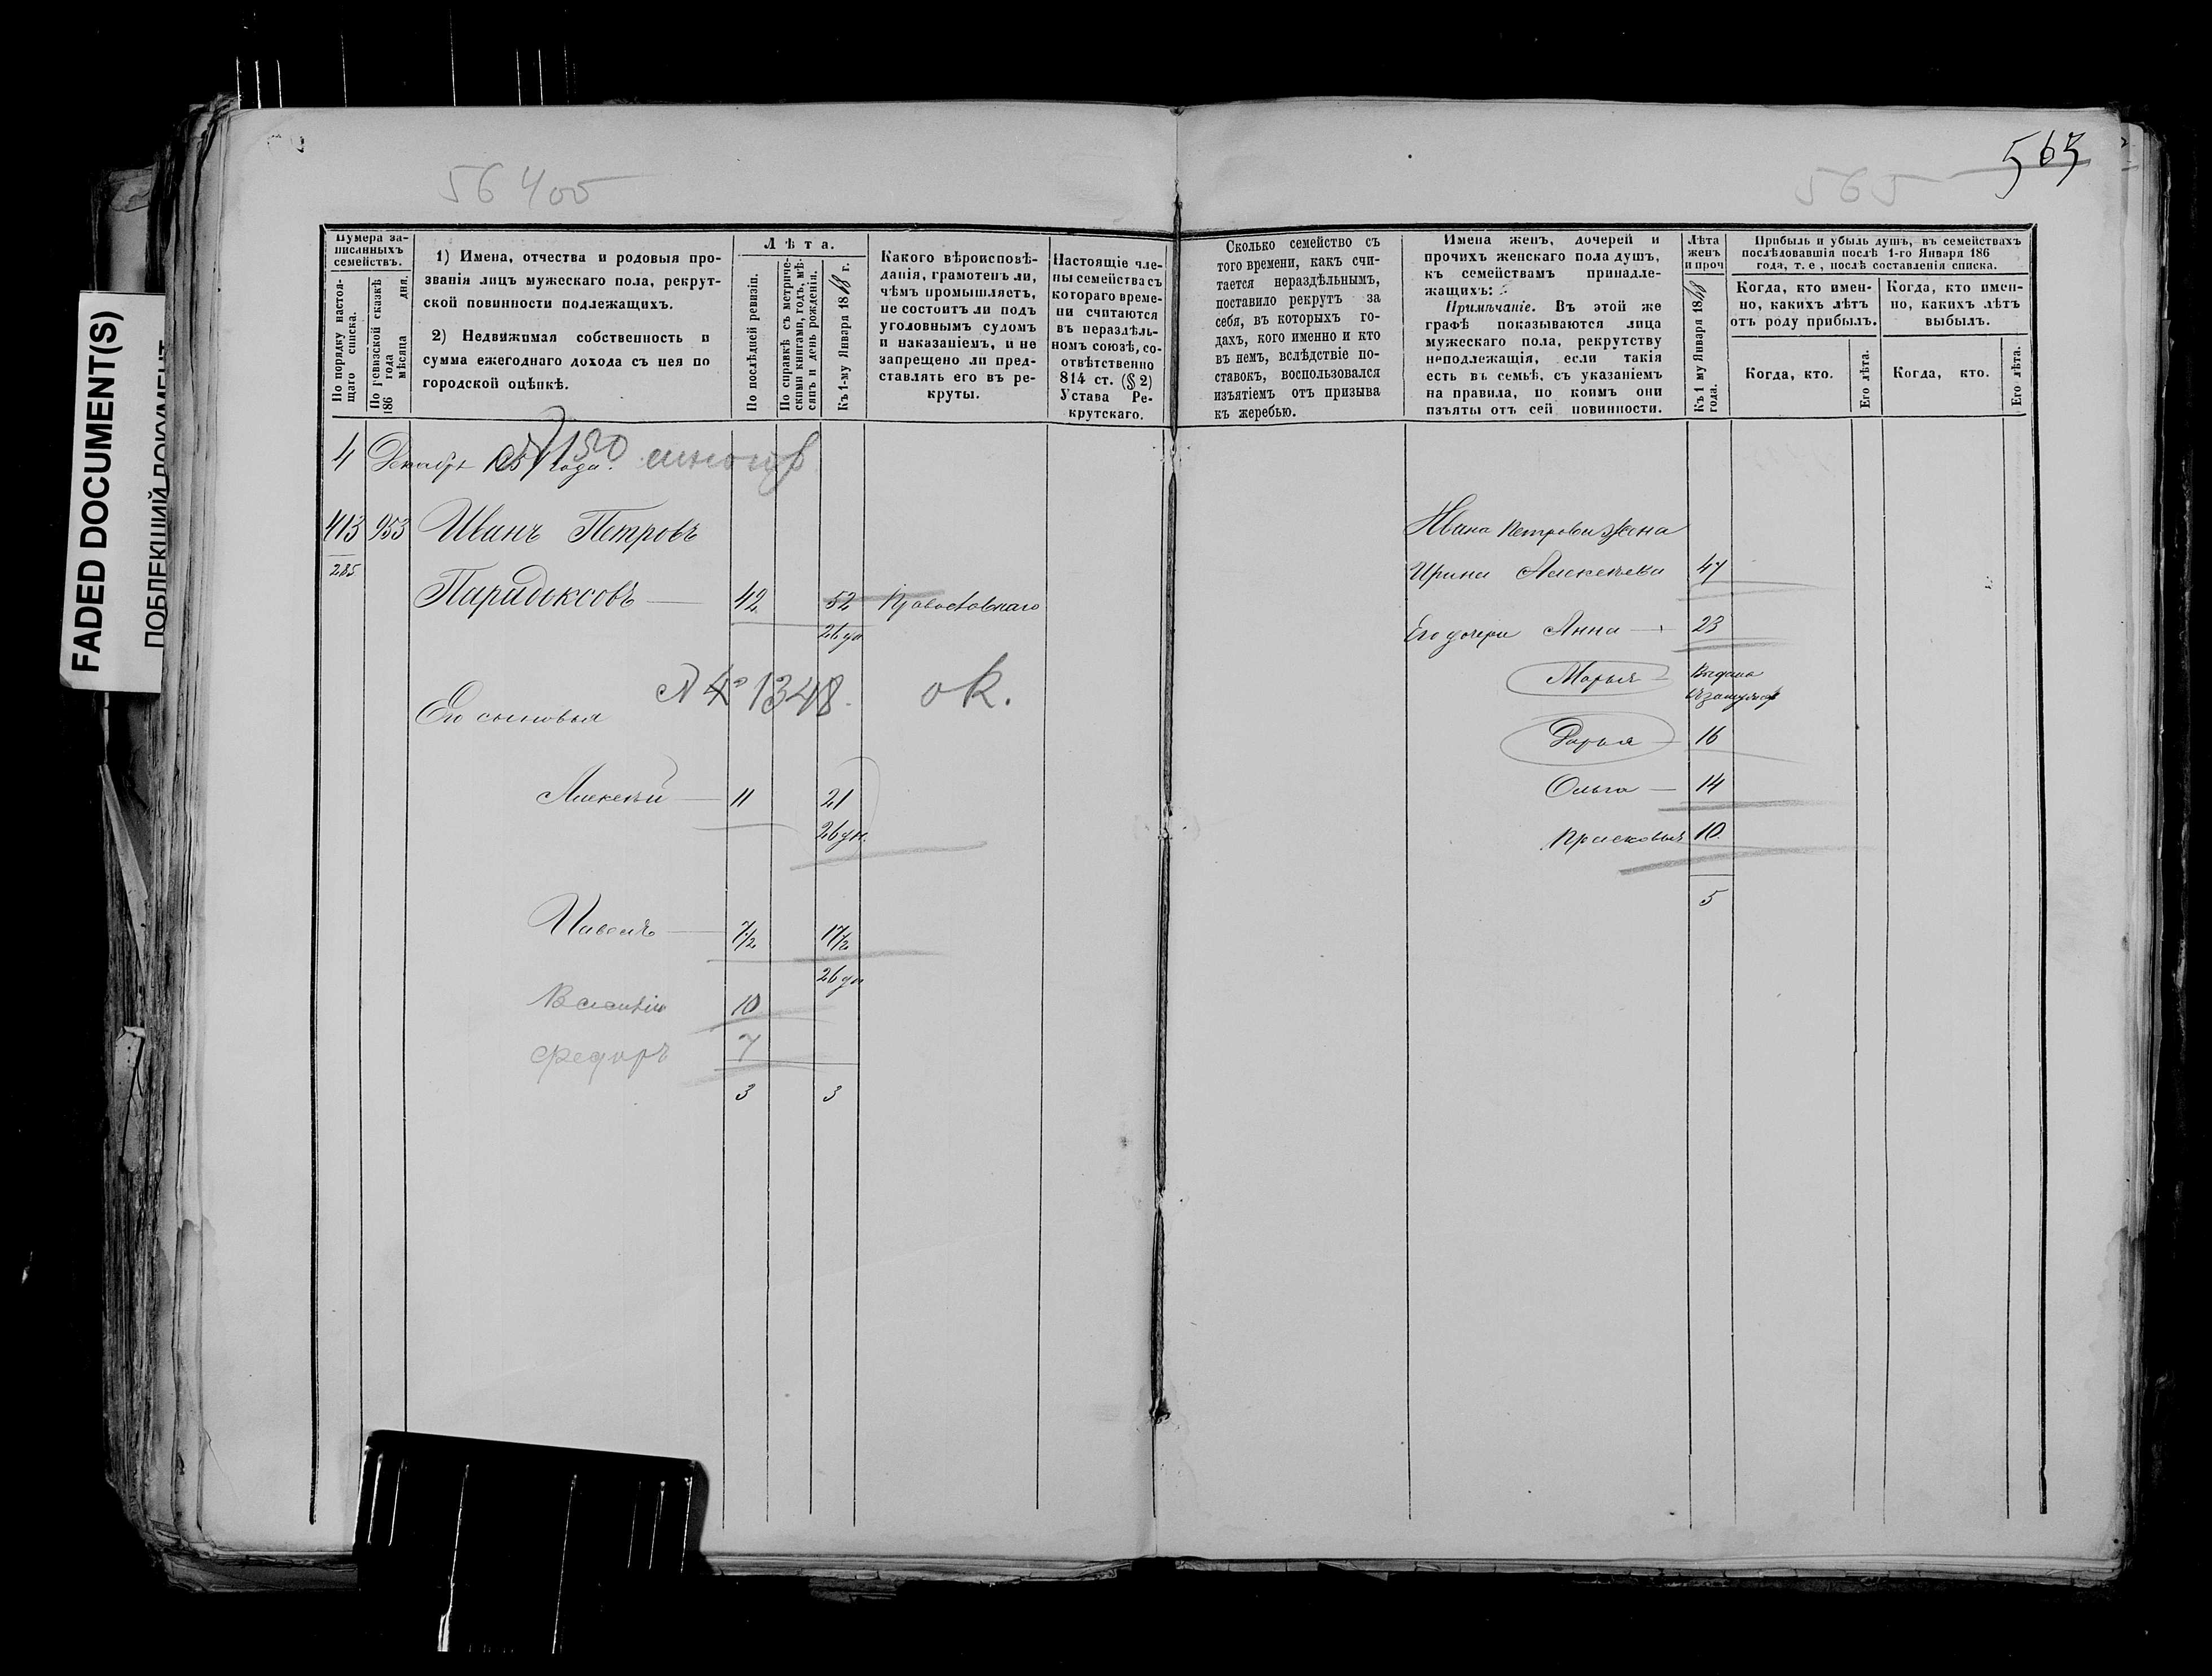 FADED DOCUMENT(S)
56400
565
565
Нумера за-
писанныхъ
семействъ.
По порядку настоя-
щаго списка.
По ревизской сказкѣ
186 года
мѣсяца дня.
1) Имена, отчества и родовыя про-
званія лицъ мужескаго пола, рекрут-
ской повинности подлежащихъ.
2) Недвижимая собственность и
сумма ежегоднаго дохода съ нея по
городской оцѣнкѣ.
Лѣта.
По послѣдней ревизіи.
По справкѣ съ метриче-
скими книгами, годъ, мѣ-
сяцъ и день рожденія.
Къ 1-му Января 1868 г.
Какого вѣроисповѣ-
данія, грамотенъ ли,
чѣмъ промышляетъ,
не состоитъ ли подъ
уголовнымъ судомъ
и наказаніемъ, и не
запрещено ли пред-
ставлять его въ ре-
круты.
Настоящіе чле-
ны семейства съ
котораго време-
ни считаются
въ нераздѣль-
номъ союзѣ, со-
отвѣтственно
814 ст. (§ 2)
Устава Ре-
крутскаго.
Сколько семейство съ
того времени, какъ счи-
тается нераздѣльнымъ,
поставило рекрутъ за
себя, въ которыхъ го-
дахъ, кого именно и кто
въ немъ, вслѣдствіе по-
ставокъ, воспользовался
изъятіемъ отъ призыва
къ жеребью.
Имена женъ, дочерей и
прочихъ женскаго пола душъ,
къ семействамъ принадле-
жащихъ:
Примѣчаніе. Въ этой же
графѣ показываются лица
мужескаго пола, рекрутству
неподлежащія, если такія
есть въ семьѣ, съ указаніемъ
на правила, по коимъ они
изъяты отъ сей повинности.
Лѣта
женъ
и проч
Къ 1 му Января 1868
года.
Прибыль и убыль душъ, въ семействахъ
послѣдовавшія послѣ 1-го Января 186
года, т. е, послѣ составленія списка.
Когда, кто имен-
но, какихъ лѣтъ
отъ роду прибылъ.
Когда, кто имен-
но, какихъ лѣтъ
выбылъ.
Когда, кто.
Его лѣта.
Когда, кто.
Его лѣта.
4 Декабря года.
413 953 Иванъ Петровъ
285
Парадоксовъ — 42 52 Православнаго
26 дн
№ 1348. ok.
Его сыновья
Алексѣй — 11 21
26 дн.
Павелъ — 7/2 17/2
26 дн
Василій 10
Федоръ 7
3 3
Ивана Петрова жена
Ирина Алексѣева 47
Его дочери Анна — 23
Марья — Выдана
въ замужст
Дарья — 16
Ольга — 14
Прасковья 10
5